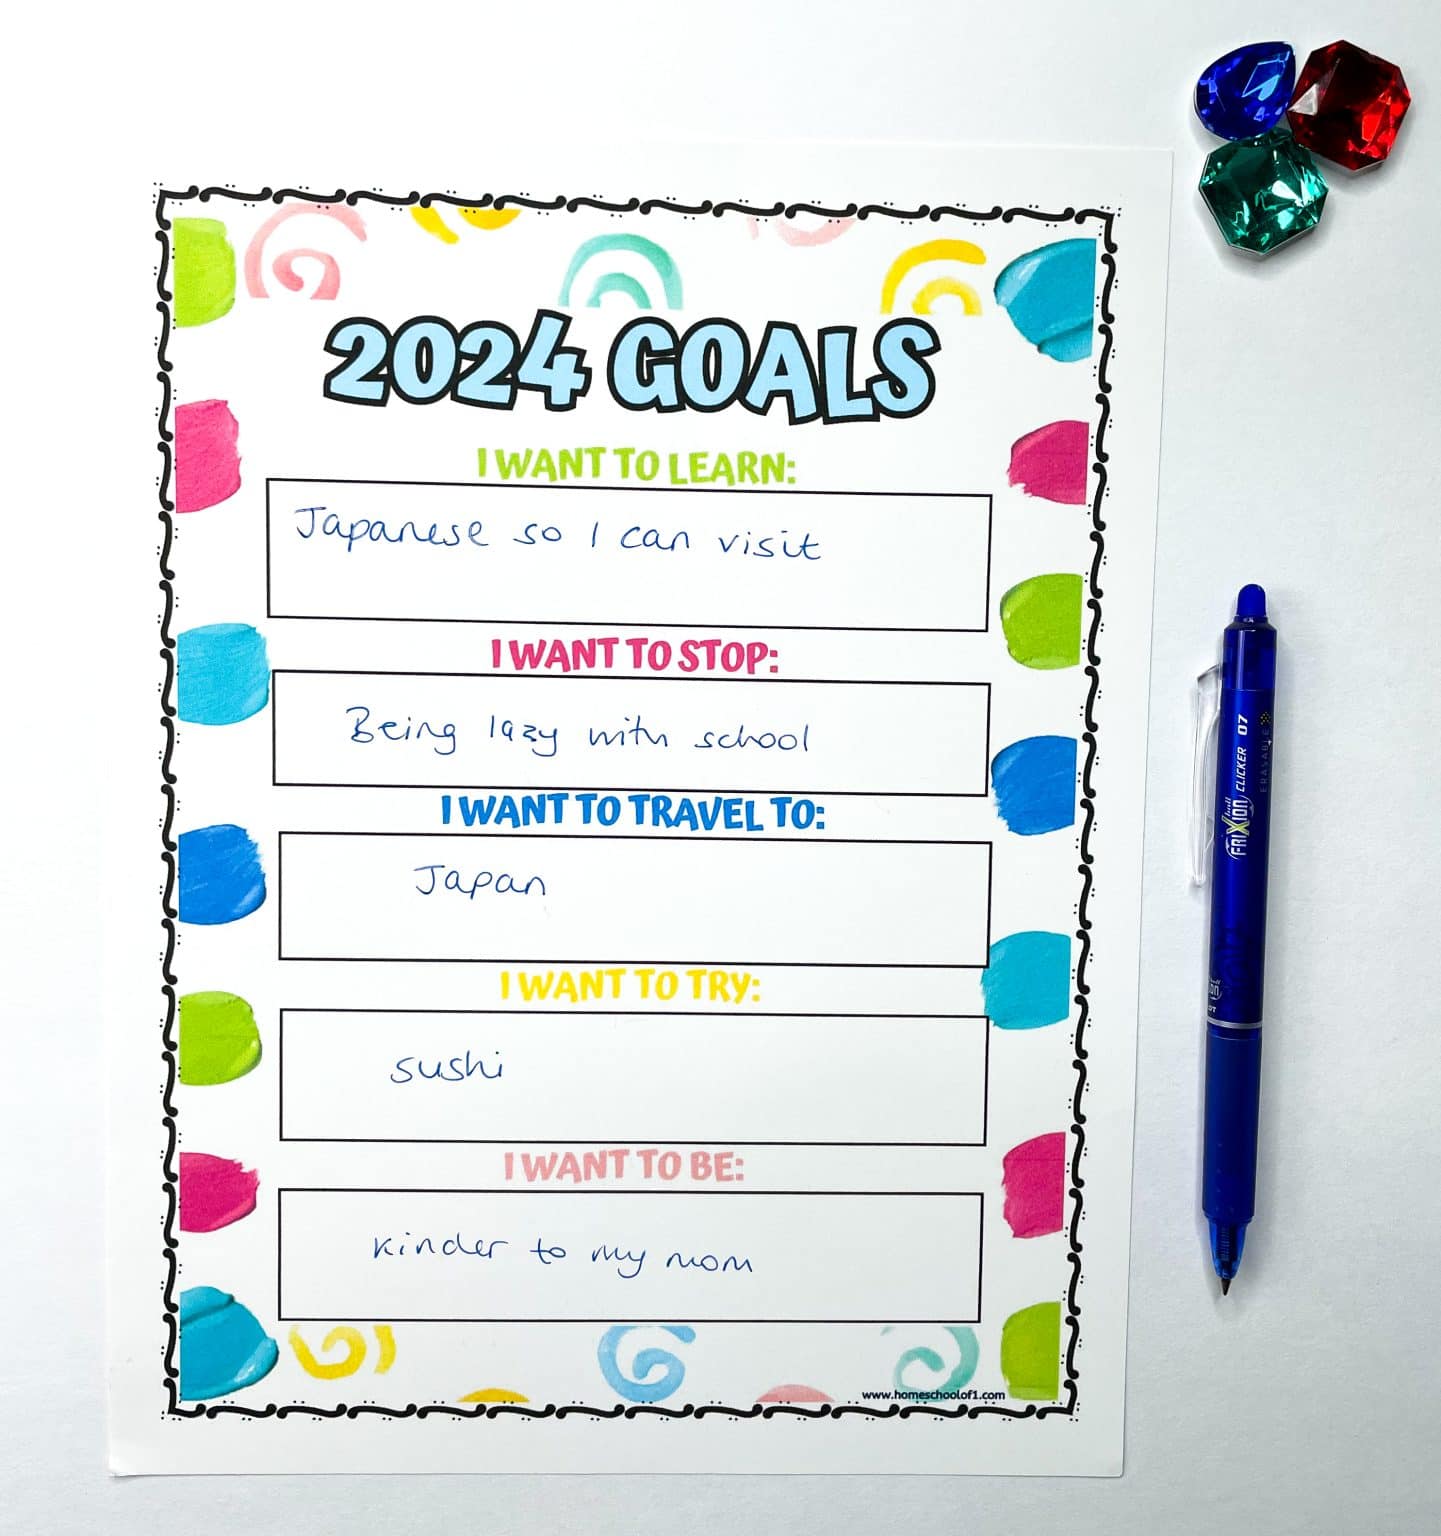 2024 GOALS
I WANT TO LEARN:
Japanese so I can visit
I WANT TO STOP:
Being lazy with school
I WANT TO TRAVEL TO:
Japan
I WANT TO TRY:
sushi
I WANT TO BE:
kinder to my mom
www.homeschoolof1.com
FRIXION ball CLICKER 07
ERASABLE